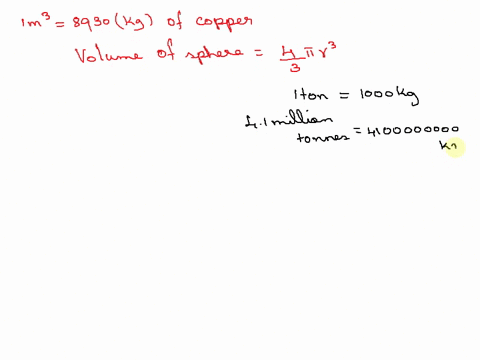 1m³ = 8930 (kg) of copper
Volume of sphere = 4/3 πr³
1ton = 1000kg
4.1 million
tonnes = 4100000000
kg